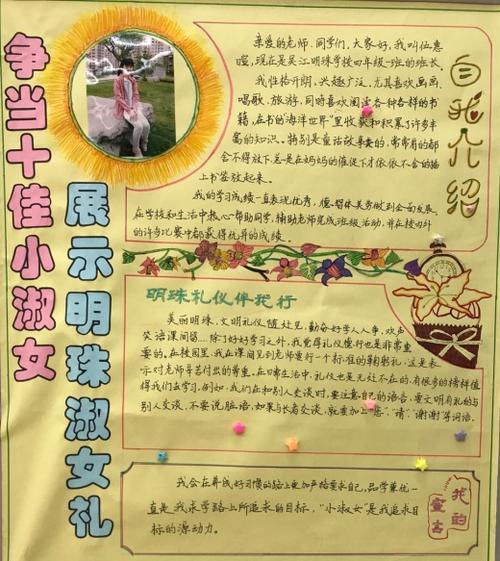 争当十佳小淑女
展示明珠淑女礼
自我介绍
亲爱的老师、同学们，大家好，我叫伍惠
瑄，现在是吴江明珠学校四年级一班的班长。
我性格开朗，兴趣广泛，尤其喜欢画画、
唱歌、旅游，同时喜欢阅读各种各样的书
籍，在书的海洋世界里收获和积累了许多丰
富的知识。特别是童话故事书的，常常看的都
会不得放下，总是在妈妈的催促下才依依不舍的插
上书签放起来。
我的学习成绩一直表现优秀，德、智、体、美、劳做到全面发展。
在学校和生活中热心帮助同学，辅助老师完成班级活动，并在校内外
的许多比赛中都获得优异的成绩。
明珠礼仪伴我行
美丽明珠，文明礼仪随处见，勤奋好学人人争，欢声
笑语课间留……除了好好学习之外，我觉得礼仪德行也是非常重
要的，在校园里，我在课间见到老师要行一个标准的鞠躬礼，这是表
示对老师辛苦付出的尊重。在日常生活中，礼仪也是无处不在的，有很多的榜样值
得我们去学习，例如，我们在和别人交谈时，要注意自己的语言，要文明有礼的与
别人交谈，不要说脏话，如果与长者交谈，就要加上“您”“请”“谢谢”等词语。
我会在养成好习惯的路上更加严格要求自己，品学兼优一
直是我求学路上所追求的目标，“小淑女”是我追求
目标的源动力。
我的宣言